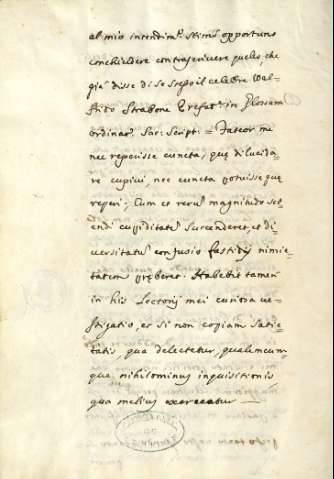 al mio intendim.º stimo opportuno
conchiudere con trascrivere quello, che
già disse di se stesso il celebre Wal=
frido Strabone Præfat: in Glossam
ordinar: Sac: Script: = Fateor, me
nec reperisse cuncta, quę dilucida=
re cupivi, nec cuncta potuisse quę
reperi; Cum et rerum magnitudo sci=
endi cupiditatem succenderet, et di=
versitatum confusio fastidij nimie=
tatem pręberet. Habebit tamen
in his Lectoris mei curiosa ve=
stigatio, et si non copiam satie=
tatis, qua delectetur, qualemcum
que nihilominus inquisitionis
qua melius exerceatur